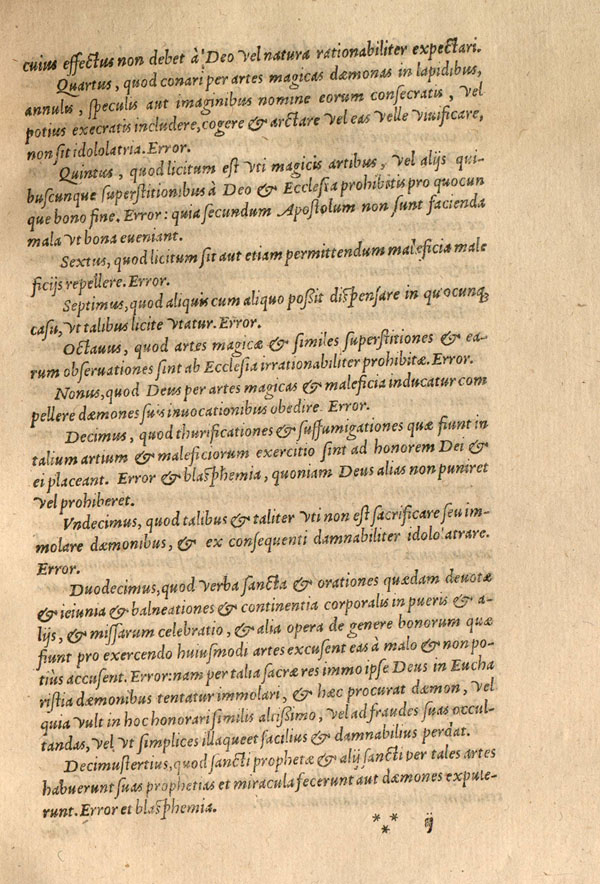 cuius effectus non debet à Deo vel natura rationabiliter expectari.
Quartus, quod conari per artes magicas dæmonas in lapidibus,
annulis, speculis aut imaginibus nomine eorum consecratis, vel
potius execratis includere, cogere & arctare vel eas velle viuificare,
non sit idololatria. Error.
Quintus, quod licitum est vti magicis artibus, vel alijs qui-
buscunque superstitionibus à Deo & Ecclesia prohibitis pro quocun
que bono fine. Error: quia secundum Apostolum non sunt facienda
mala vt bona eueniant.
Sextus, quod licitum sit aut etiam permittendum maleficia male
ficijs repellere. Error.
Septimus, quod aliquis cum aliquo possit dispensare in quocunq;
casu, vt talibus licite vtatur. Error.
Octauus, quod artes magicæ & similes superstitiones & ea-
rum obseruationes sint ab Ecclesia irrationabiliter prohibitæ. Error.
Nonus, quod Deus per artes magicas & maleficia inducatur com
pellere dæmones suis inuocationibus obedire Error.
Decimus, quod thurificationes & suffumigationes quæ fiunt in
talium artium & maleficiorum exercitio sint ad honorem Dei &
ei placeant. Error & blasphemia, quoniam Deus alias non puniret
vel prohiberet.
Vndecimus, quod talibus & taliter vti non est sacrificare seu im-
molare dæmonibus, & ex consequenti damnabiliter idolo atrare.
Error.
Duodecimus, quod verba sancta & orationes quædam deuotæ
& ieiunia & balneationes & continentia corporalis in pueris & a-
lijs, & missarum celebratio, & alia opera de genere bonorum quæ
fiunt pro exercendo huiusmodi artes excusent eas à malo & non po-
tiùs accusent. Error: nam per talia sacræ res immo ipse Deus in Eucha
ristia dæmonibus tentatur immolari, & hæc procurat dæmon, vel
quia vult in hoc honorari similis altissimo, vel ad fraudes suas occul-
tandas, vel vt simplices illaqueet facilius & damnabilius perdat.
Decimustertius, quod sancti prophetæ & alij sancti per tales artes
habuerunt suas prophetias et miracula fecerunt aut dæmones expule-
runt. Error et blasphemia.
*** ij